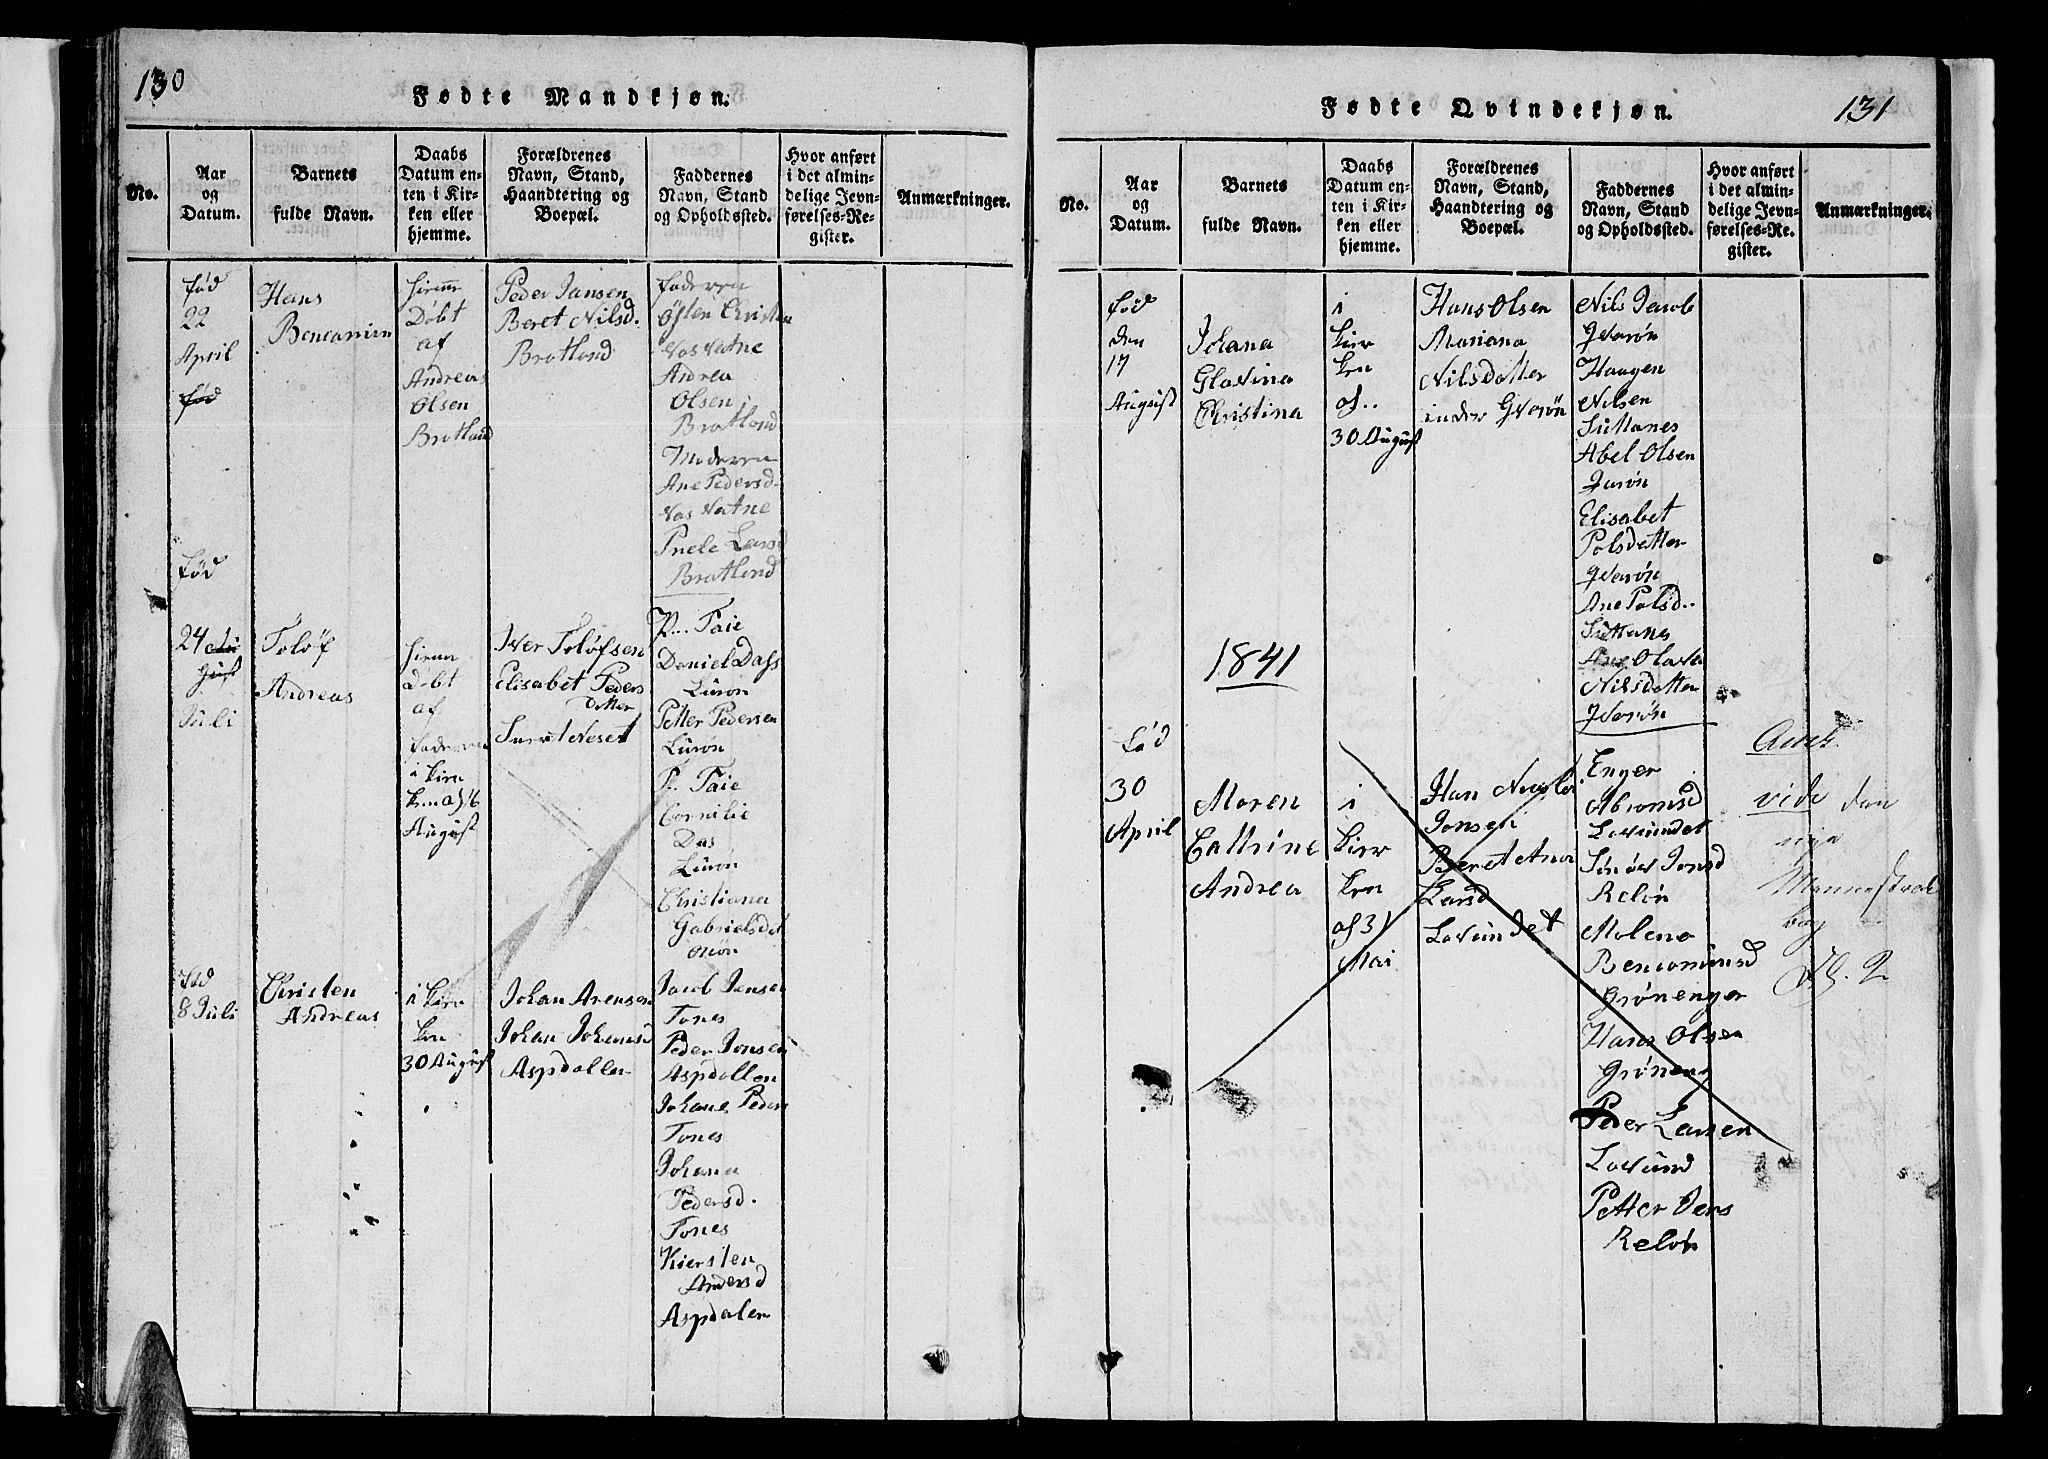 130
Fødte Mandkjøn.
No.
Aar
og
Datum.
Barnets
fulde Navn.
Daabs
Datum en-
ten i Kir-
ken eller
hjemme.
Forældrenes
Navn, Stand,
Haandtering og
Boepæl.
Faddernes
Navn, Stand
og Opholdssted.
Hvor anført
i det almin-
delige Jevn-
førelses-Re-
gister.
Anmærkninger.
fød
22
April
fød
Hans
Døbt
af
Andreas
Olsen
Brotland
Peder Jansen
Beret Nilsd.
Brotland
faderen
Østen Christen
Andrea
Olsen
Brotland
Moderen
Ane Pedersd.
Brotland
fød
24
Juli
Toløf
Andreas
døbt
af
faderen
i kirn
August
Iver Toløfsen
Elisabet Peders
dotter
P... Paie
Daniel Dass
Lurøn
Petter Pedersen
Lurøn
P.. Paie
Cornilie
Das
Lurøn
Christiana
Gabrielsdet
fød
8 Juli
Christen
Andreas
i kirn
ken
30 August
Johan Arensen
Johan Johansd
Aspdallen
Jacob Jansen
Tones
Peder Jonsen
Aspdallen
Johane Peders
Tones
Johana
Pedersd.
Tones
Kiersten
Andersd
Aspdalen
Fødte Qvindekjøn.
131
No.
Aar
og
Datum.
Barnets
fulde Navn.
Daabs
Datum en-
ten i Kir-
ken eller
hjemme.
Forældrenes
Navn, Stand,
Haandtering og
Boepæl.
Faddernes
Navn, Stand
og Opholdssted.
Hvor anført
i det almin-
delige Jevn-
førelses-Re-
gister.
Anmærkninger.
fød
den
17
August
Johana
Glavina
Christina
i
kirr
ken
af..
30 August
Hans Olsen
Mariana
Nilsdotter
inder Qvarøn
Nils Jacob
Qvarøn
Haagen
Nilsen
Abel Olsen
Elisabet
Polsdatter
Qvarøn
Ane Polsd..
Ane Olava
Nilsdatter
Qvarøn
1841
fød
30
April
Maren
Cathrine
Andrea
i
kirr
ken
af 31
Mai
Jonsen
Beret Ana
Larsd
Lovundet
Enger
Abromsd
Lovundet
Jonsd
Reløn
Malena
Bencominsd
Grønenger
Hans Olsen
Grøneng
Peder Larsen
Lovund
Petter Jens
Reløn
Anm.
vide den
nye
bog